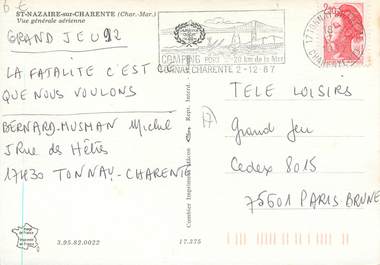 6 €
ST-NAZAIRE-sur-CHARENTE (Char.-Mar.)
Vue générale aérienne
GRAND JEU 92
LA FATALITE C'EST CE
QUE NOUS VOULONS
BERNARD-MUSMAN Michel
5 Rue des Hêtres
17430 TONNAY-CHARENTE
3.95.82.0022
17.375
CAMPING PORT 20 km de la Mer
TONNAY CHARENTE 2-12-87
TELE LOISIRS
Grand Jeu
Cedex 8015
75601 PARIS-BRUNE